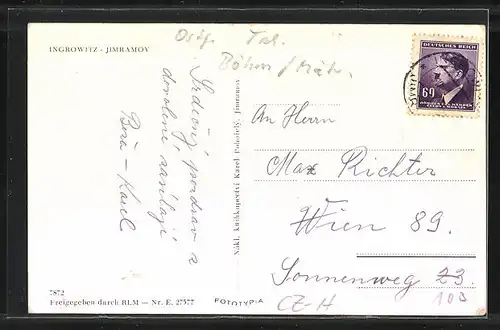 INGROWITZ - JIMRAMOV
Ostf. Tel.
Böhm / Mähr.
DEUTSCHES REICH
60
BÖHMEN U. MÄHREN
ČECHY A MORAVA
Srdečný pozdrav z
dovolené zasílají
Béra - Karel
Nákl. knihkupectví Karel Pokorný, Jimramov
An Herrn
Max Richter
Wien 89.
Sonnenweg 23.
CZ-H
100
7872
Freigegeben durch RLM — Nr. E. 27577
FOTOTYPIA